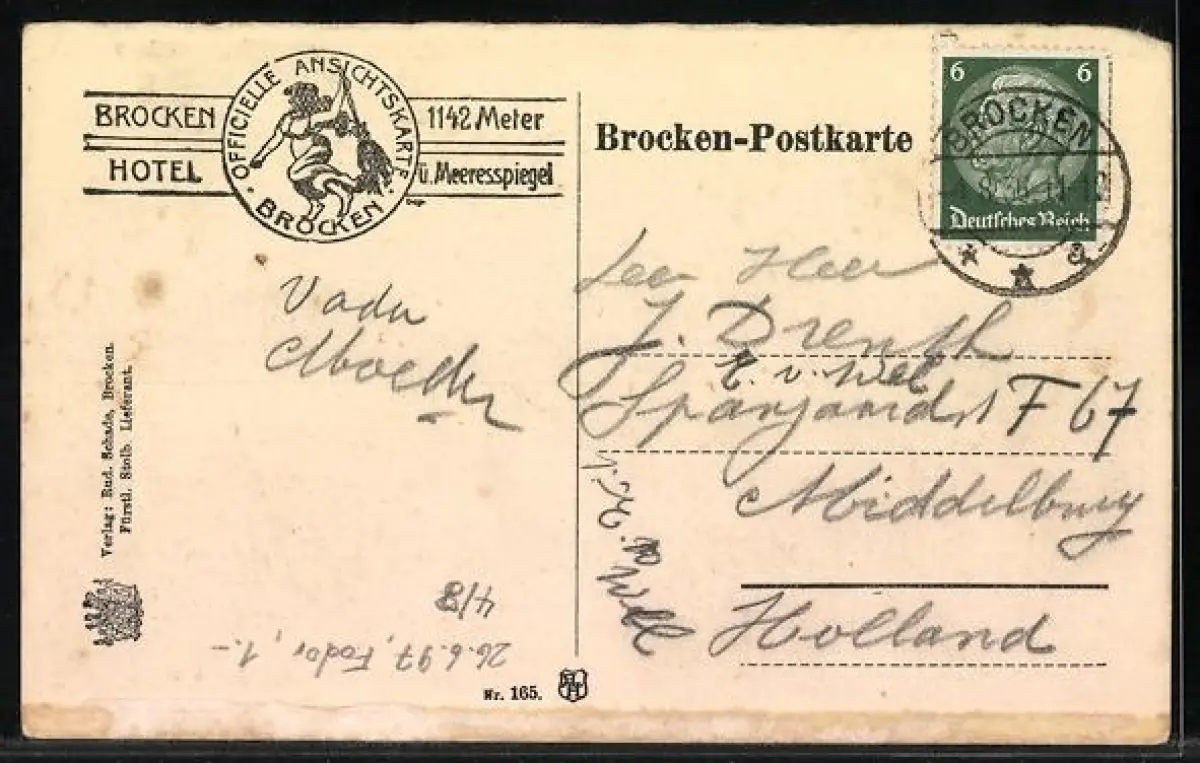 BROCKEN
HOTEL
OFFICIELLE ANSICHTSKARTE
BROCKEN
1142 Meter
ü. Meeresspiegel
Brocken-Postkarte
6 6
Deutsches Reich
BROCKEN
Heer
J. Drenth
Spanjaardst F 67
Middelburg
Holland
Vader
Moeder
Verlag: Rud. Schade, Brocken.
Fürstl. Stolb. Lieferant.
4/8
26.6.97, Fodor, 1.-
Nr. 165.